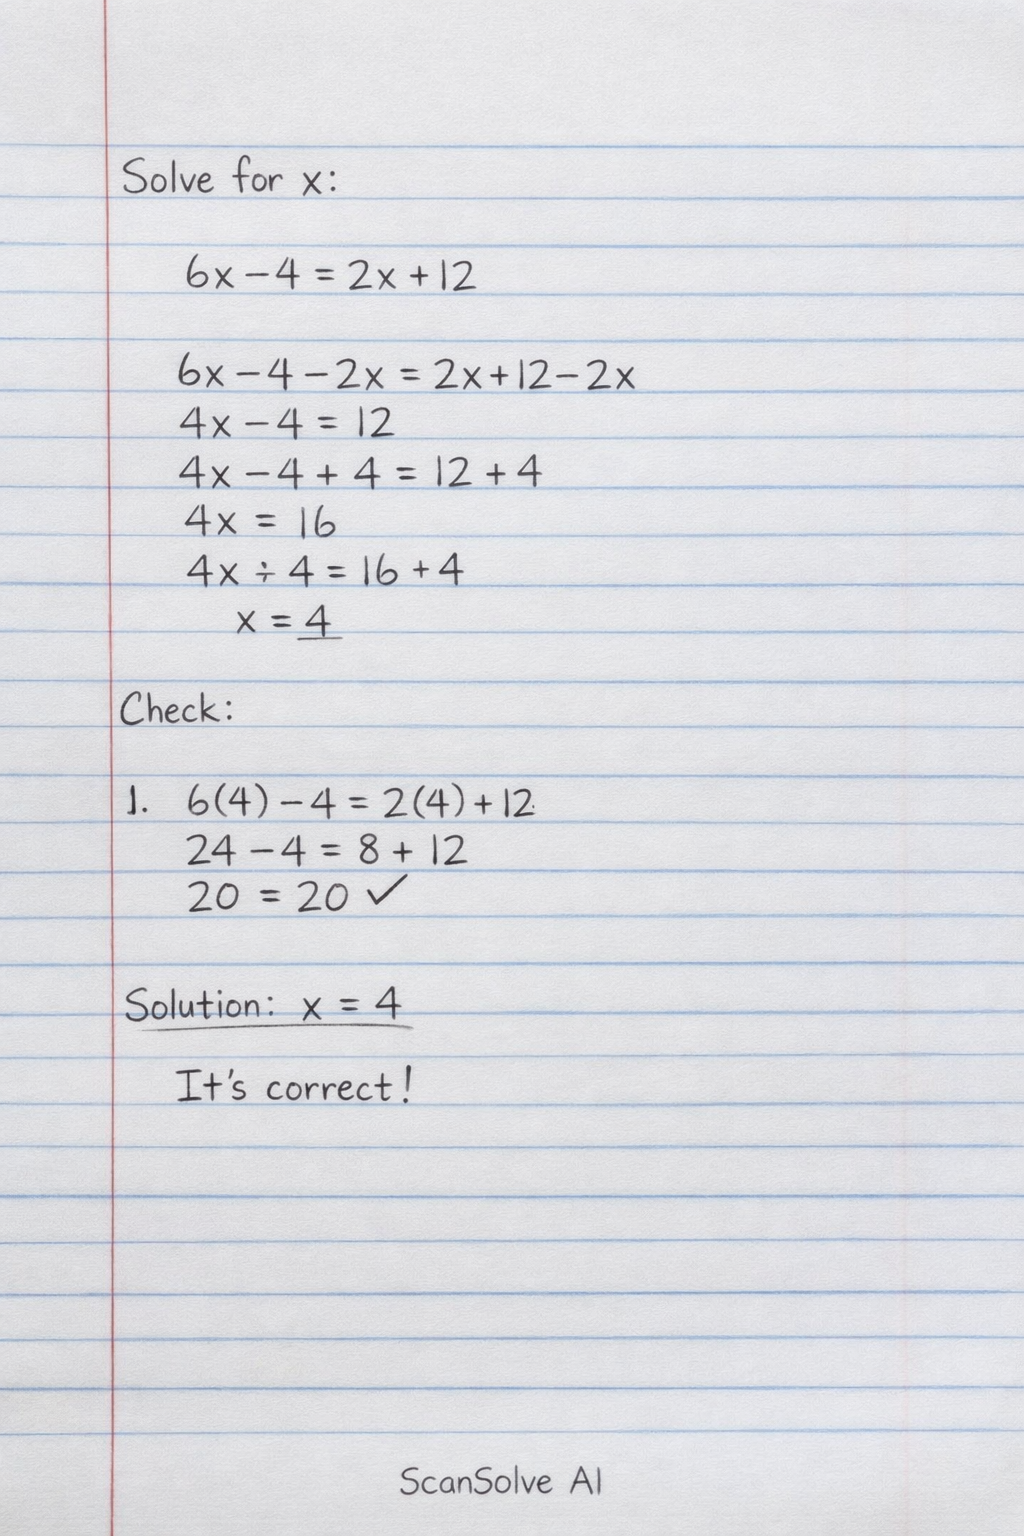 Solve for x:
6x - 4 = 2x + 12
6x - 4 - 2x = 2x + 12 - 2x
4x - 4 = 12
4x - 4 + 4 = 12 + 4
4x = 16
4x ÷ 4 = 16 + 4
x = 4
Check:
1. 6(4) - 4 = 2(4) + 12
24 - 4 = 8 + 12
20 = 20 ✓
Solution: x = 4
It's correct!
ScanSolve AI